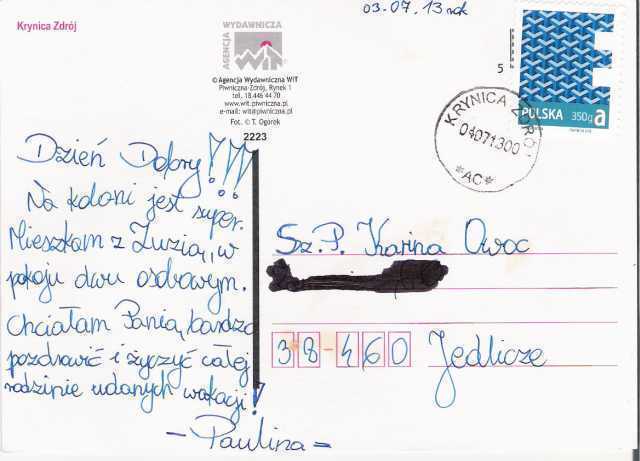 03.07.13 rok
Krynica Zdrój
AGENCJA
WYDAWNICZA
WiT
© Agencja Wydawnicza WiT
Piwniczna-Zdrój, Rynek 1
tel. 18 446 44 70
www.wit.piwniczna.pl
e-mail: wit@piwniczna.pl
Fot. © T. Ogórek
2223
5
E
POLSKA 350g a
KRYNICA ZDRÓJ
04071300
*AC*
Dzień Dobry!!!
Na koloni jest super.
Mieszkam z Zuzią, w
pokoju dwu osobowym.
Chciałam Panią, bardzo
pozdrawić i życzyć całej
rodzinie udanych wakacji!
- Paulina -
Sz. P. Karina Owoc
38-460 Jedlicze